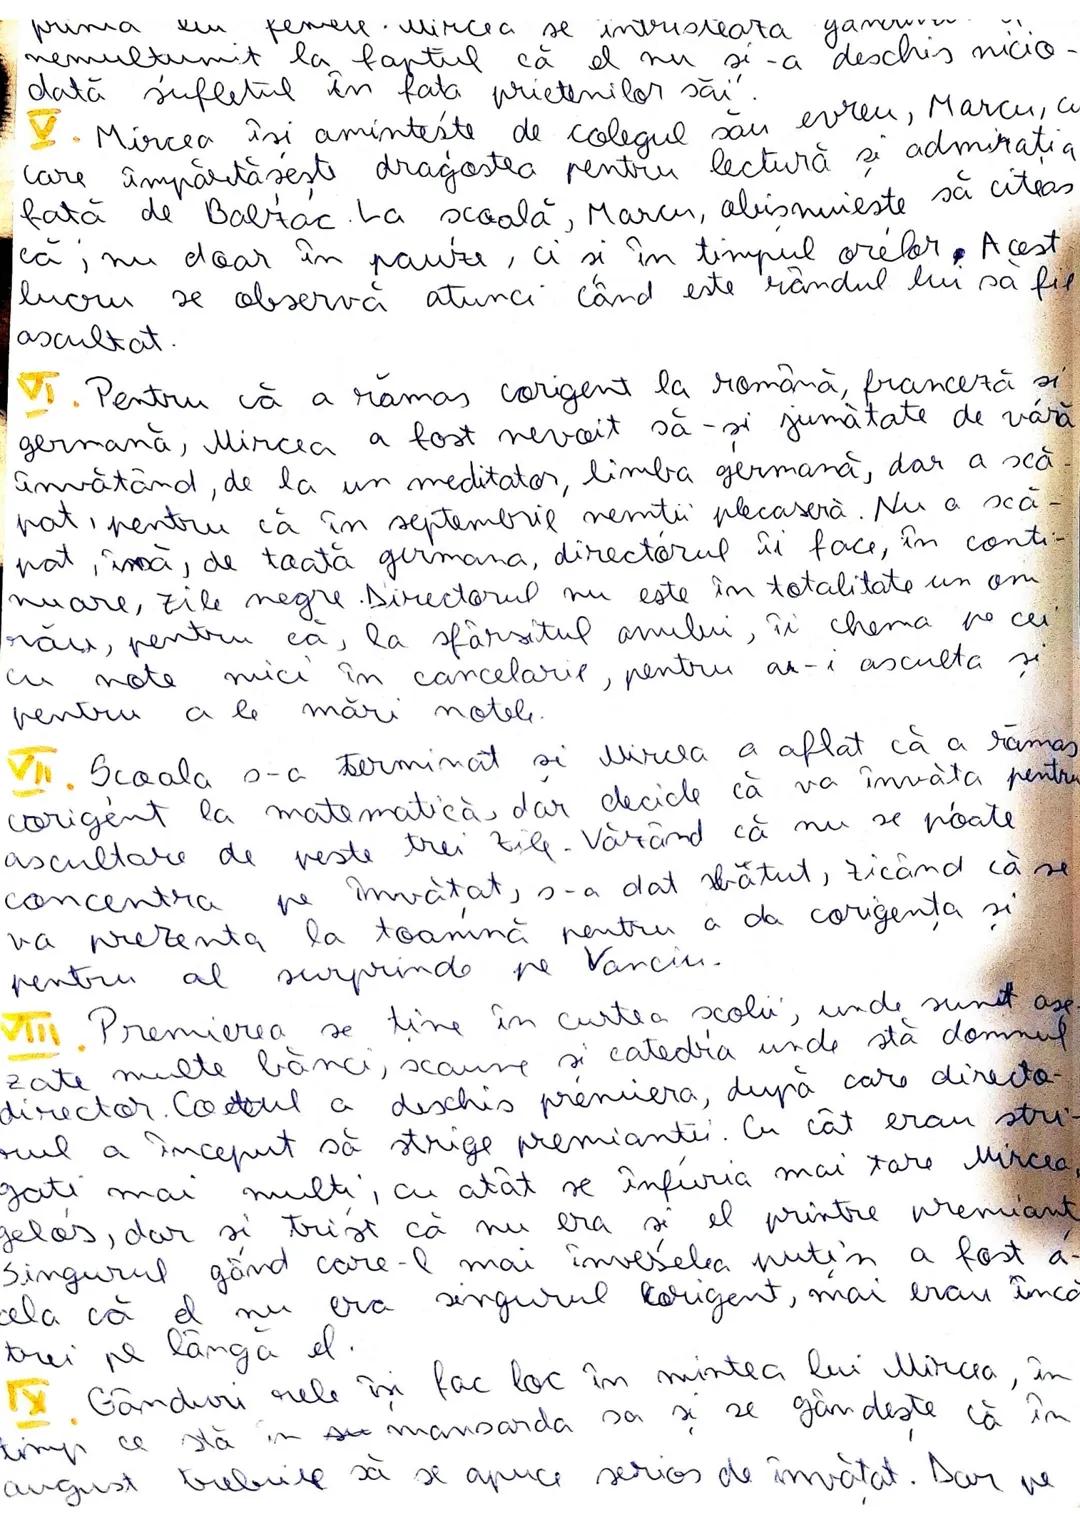 prima lui femeie. Mircea se întristează gândindu-
nemulțumit la faptul că el nu și-a deschis nicio-
dată sufletul în fața prietenilor săi.
V. Mircea își amintește de colegul său evreu, Marcu, cu
care împărtășește dragostea pentru lectură și admirația
față de Balzac. La școală, Marcu, obișnuiește să citeas
că, nu doar în pauze, ci și în timpul orelor. Acest
lucru se observă atunci când este rândul lui să fie
ascultat.
VI. Pentru că a rămas corigent la română, franceză și
germană, Mircea a fost nevoit să-și jumătate de vară
învățând, de la un meditator, limba germană, dar a scă-
pat, pentru că în septembrie nemții plecaseră. Nu a scă-
pat, însă, de toată germana, directorul îi face, în conti-
nuare, zile negre. Directorul nu este în totalitate un om
rău, pentru că, la sfârșitul anului, îi chema pe cei
cu note mici în cancelarie, pentru a-i asculta și
pentru a le mări notele.
VII. Școala s-a terminat și Mircea a aflat că a rămas
corigent la matematică, dar decide că va învăța pentru
ascultare de peste trei zile. Văzând că nu se poate
concentra pe învățat, s-a dat bătut, zicând că se
va prezenta la toamnă pentru a da corigența și
pentru al surprinde pe Vanciu.
VIII. Premierea se ține în curtea școlii, unde sunt așe
zate multe bănci, scaune și catedra unde stă domnul
director. Corul a deschis premiera, după care directo-
rul a început să strige premianții. Cu cât erau stri-
gați mai mulți, cu atât se înfuria mai tare Mircea,
gelos, dar și trist că nu era și el printre premianț
Singurul gând care-l mai înveselea puțin a fost a-
cela că el nu era singurul corigent, mai erau încă
trei pe lângă el.
IX. Gânduri rele își fac loc în mintea lui Mircea, în
timp ce stă în mansarda sa și se gândește că în
august trebuie să se apuce serios de învățat. Dar pe